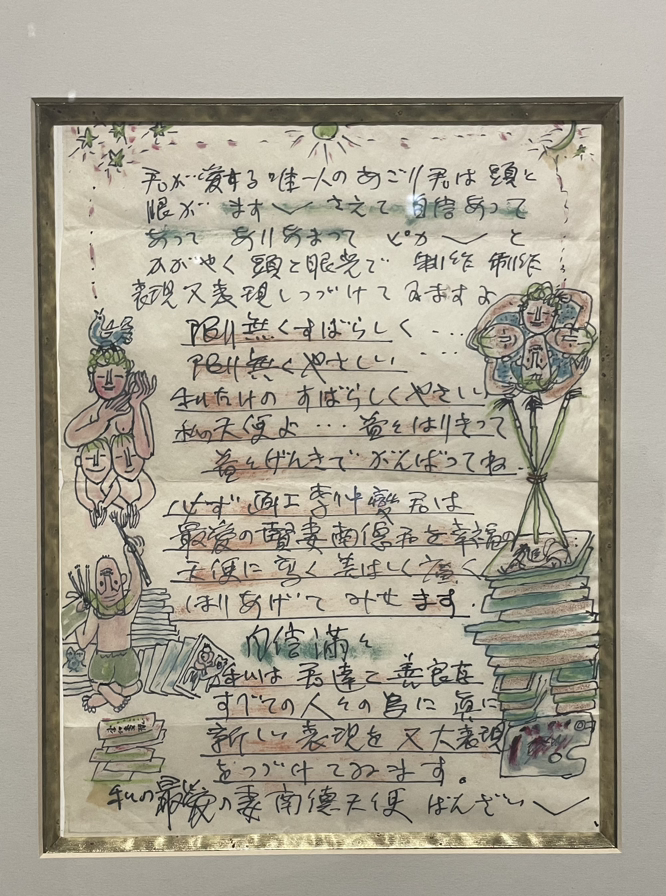 君が愛する唯一人のあごり君は頭と
眼が ます〱 さえて 自信あって
あって ありあまって ピカ〱 と
かがやく 頭と眼光で 制作 制作
表現又表現しつづけてゐますよ
限り無くすばらしく ...
限り無くやさしい ...
私だけの すばらしくやさしい
私の天使よ ... 益々はりきって
益々げんきで がんばってね.
必ず 画工 李仲燮君は
最愛の賢妻南德君を幸福の
天使に 高く 美はしく 廣く
ほりあげて みせ ます.
自信満々
私は 君達と 善良な
すべての人々の為に 眞に
新しい 表現を 又大表現
をつづけてゐます。
私の最愛の妻南德天使 ばんざい〱